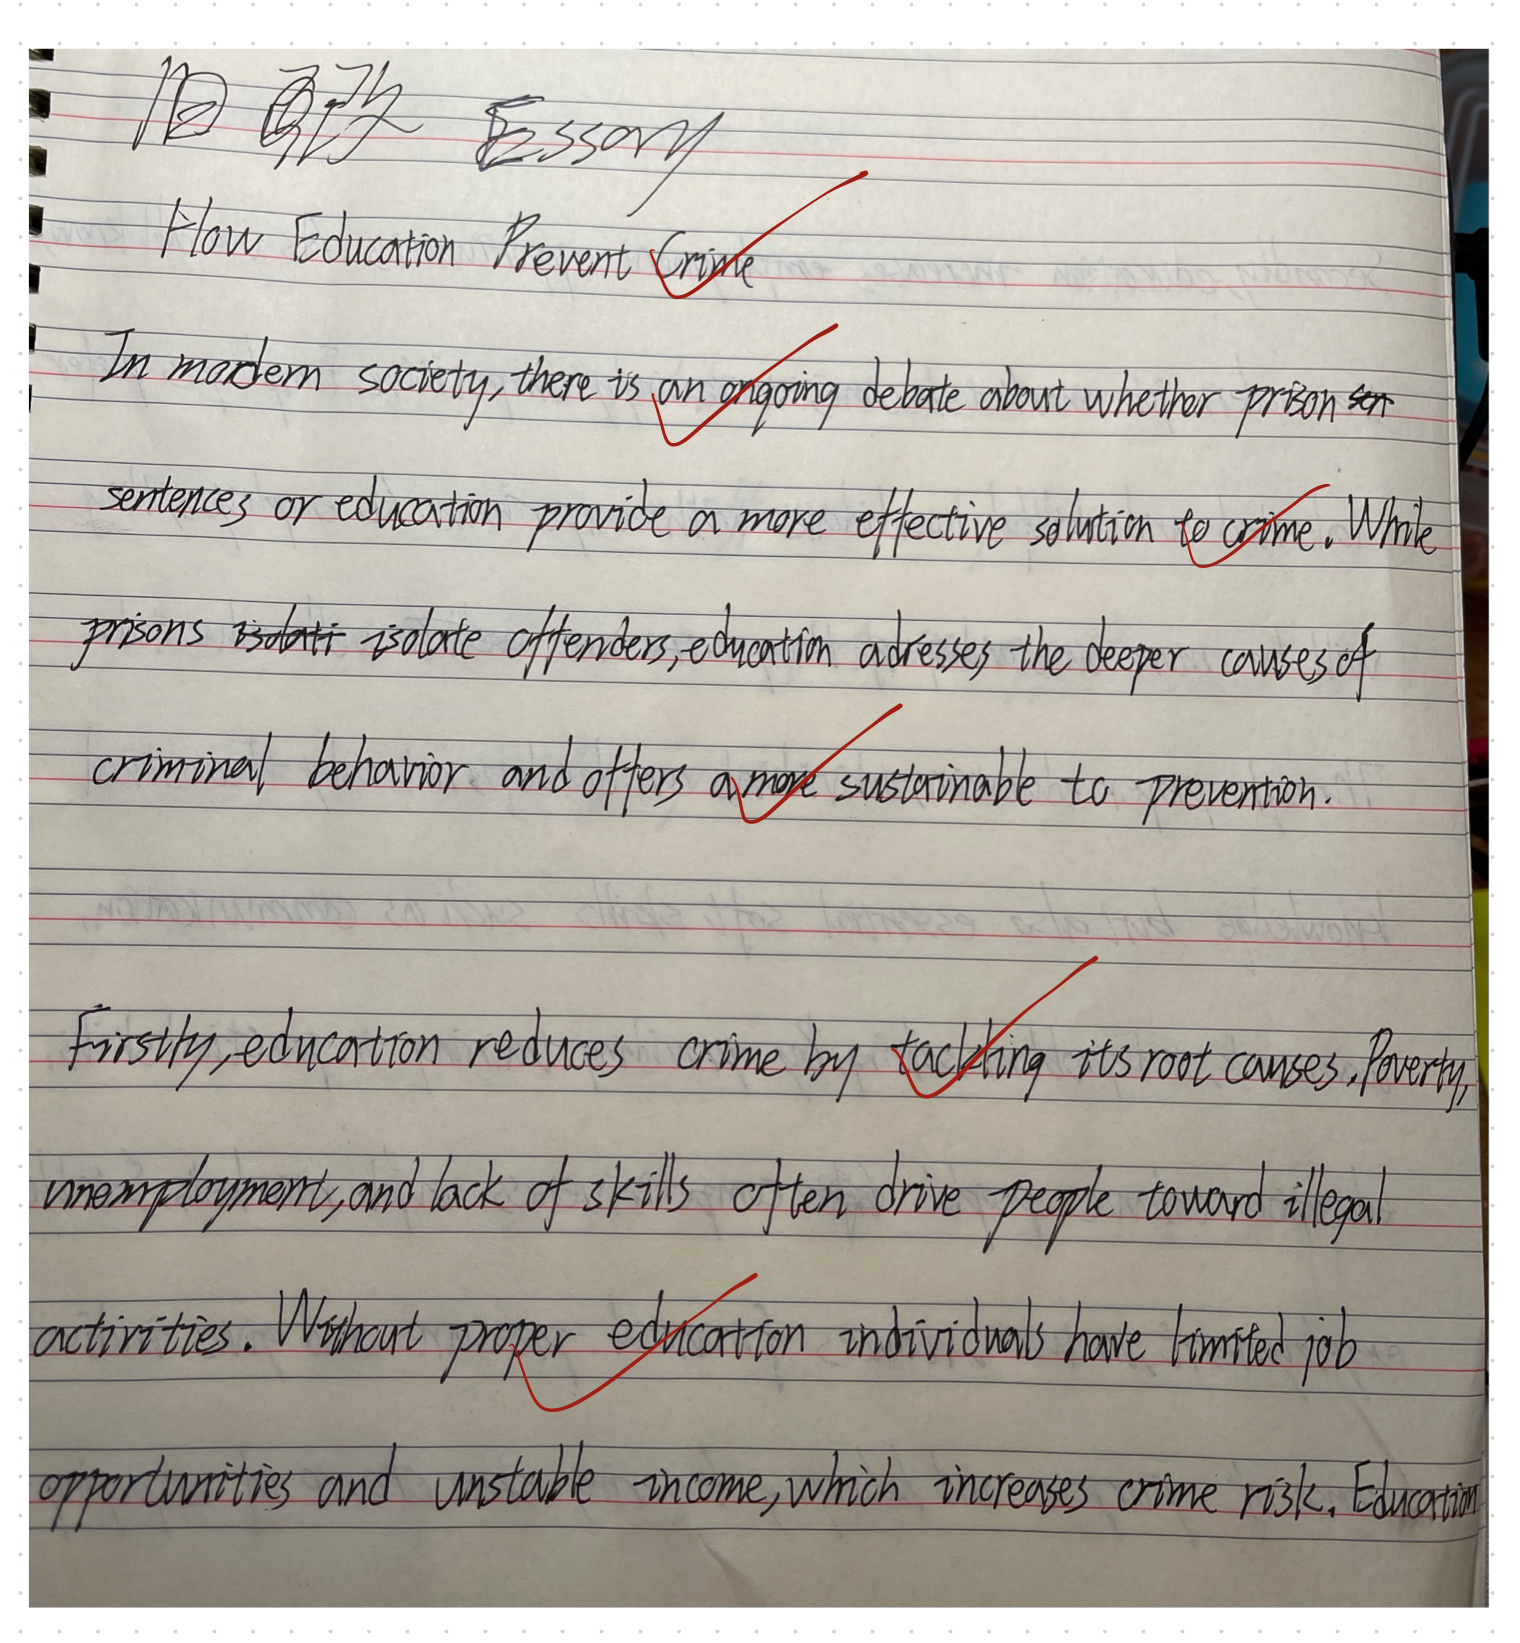 旧改 Essory
How Education Prevent Crime
In mordern society, there is an ongoing debate about whether prison
sentences or education provide a more effective solution to crime. While
prisons isolate offenders, education adresses the deeper causes of
criminal behavior and offers a more sustainable to prevention.
Firstly, education reduces crime by tackling its root causes. Poverty,
unemployment, and lack of skills often drive people toward illegal
activities. Without proper education individuals have limited job
opportunities and unstable income, which increases crime risk. Education